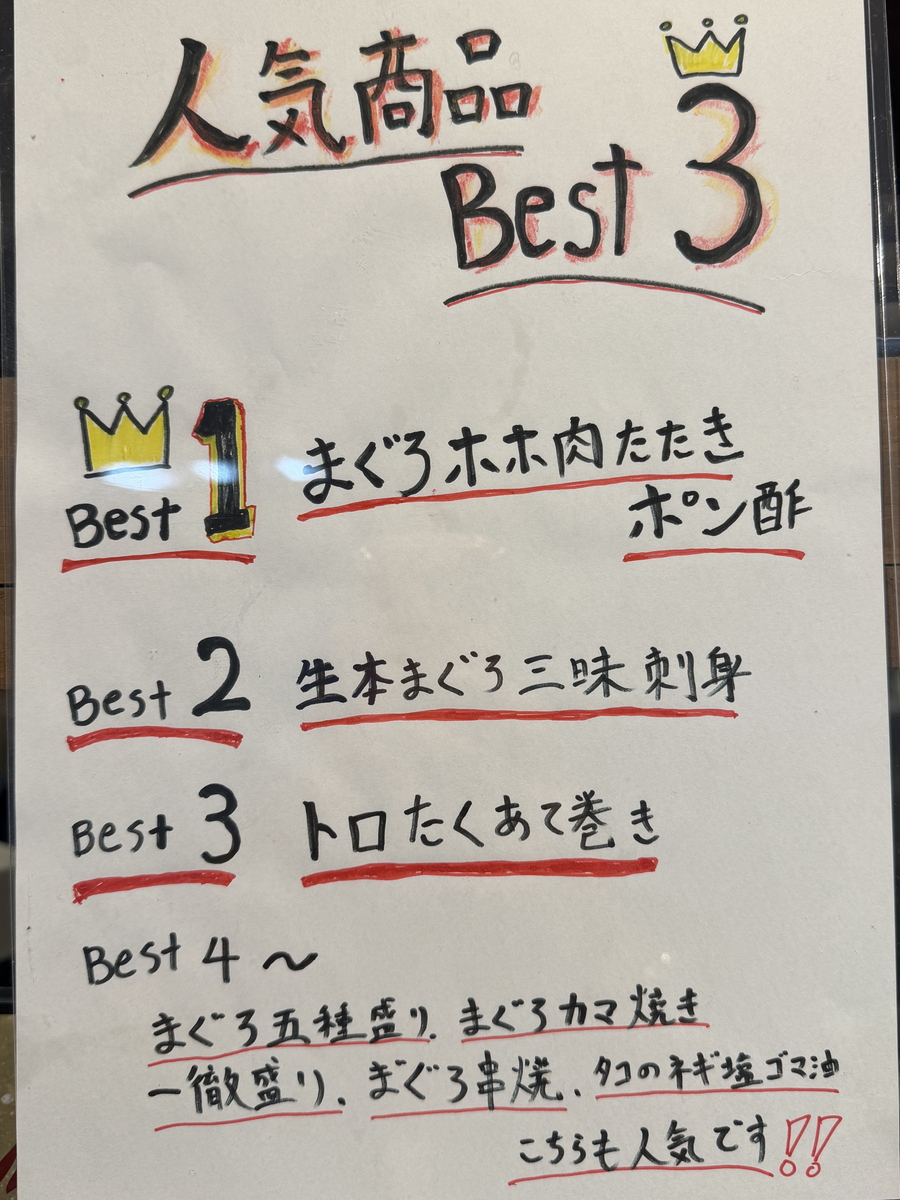 人気商品
Best 3
Best 1 まぐろホホ肉たたき
ポン酢
Best 2 生本まぐろ三昧刺身
Best 3 トロたくあて巻き
Best 4〜
まぐろ五種盛り、まぐろカマ焼き
一徹盛り、まぐろ串焼、タコのネギ塩ゴマ油
こちらも人気です!!